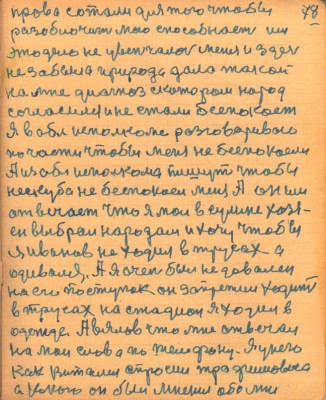 78
права со стали для того чтобы
разоблочит мою способност и
это дело не увенчалос меня и здес
не забыла природа дала такой
на мне диагноз с котором народ
согласился и не стали беспокоет
Я в обл исполкоме разговаривал
по части чтобы меня не беспокоели
А из обл исполкома пишут чтобы
не беспокоели меня А он им
отвечает что я мол в сумме хозя-
ен выбран народам и хочу чтобы
Иванов не ходил в трусах а
одивался, А я очен был не доволен
на его поступок он запретил ходит
в трусах на стадион я ходил в
одежде. А вялов что мне отвечал
на мои слова по телефону. Я у него
как Виталий спросил трофимовича
а какого он был мнения обо мне